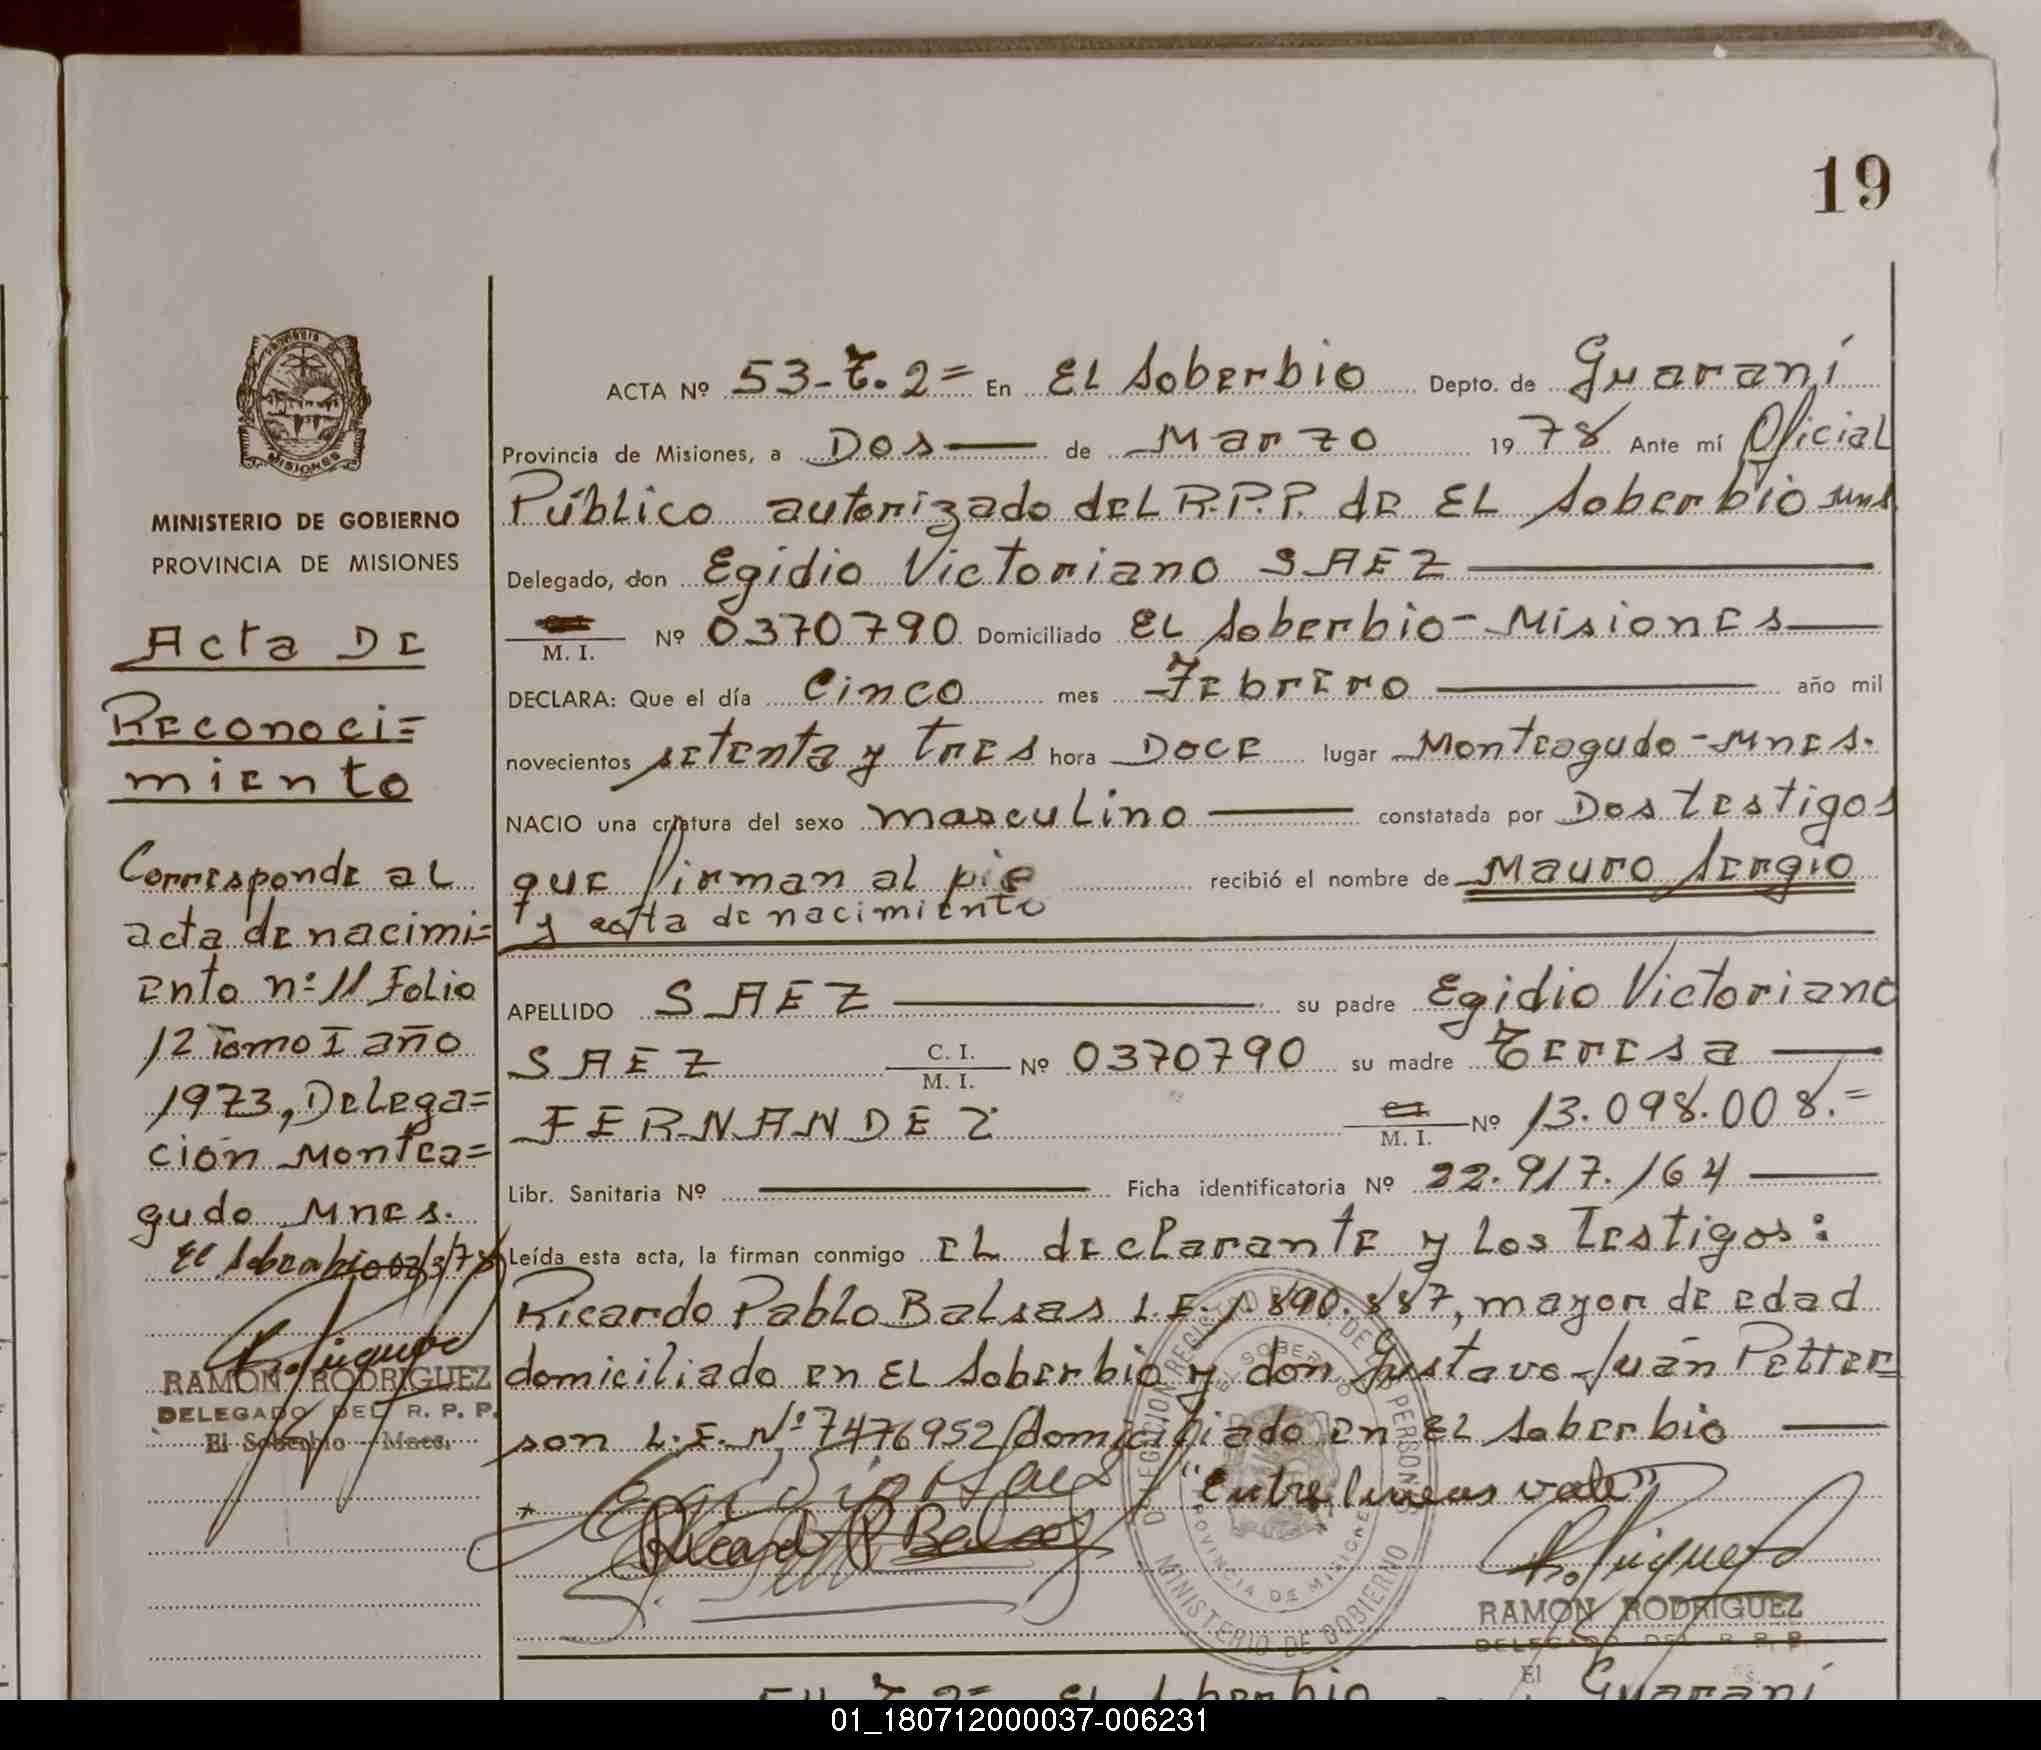 19
MISIONES
MINISTERIO DE GOBIERNO
PROVINCIA DE MISIONES
Acta DE
Reconoci=
miento
Corresponde al
acta de nacimi=
ento nº 11 Folio
12 Tomo I año
1973, Delega=
ción Montea=
gudo Mnes.
El Soberbio 02/3/78
RAMON RODRIGUEZ
DELEGADO DEL R. P. P.
El Soberbio - Mnes.
ACTA Nº 53-T.2= En EL Soberbio Depto. de Guaraní
Provincia de Misiones, a Dos de Marzo 1978 Ante mí Oficial
Público autorizado del R.P.P. de EL Soberbio Mns
Delegado, don Egidio Victoriano SAEZ
M. I. Nº 0370790 Domiciliado EL Soberbio - Misiones
DECLARA: Que el día Cinco mes Febrero año mil
novecientos setenta y tres hora Doce lugar Monteagudo - Mnes.
NACIO una criatura del sexo masculino constatada por Dos testigos
que firman al pie recibió el nombre de Mauro Sergio
y acta de nacimiento
APELLIDO SAEZ su padre Egidio Victoriano
SAEZ C. I. M. I. Nº 0370790 su madre Teresa
FERNANDEZ M. I. Nº 13.098.008.=
Libr. Sanitaria Nº Ficha identificatoria Nº 22.917.164
Leída esta acta, la firman conmigo el declarante y los Testigos:
Ricardo Pablo Balsas L.E. 1.890.887, mayor de edad
domiciliado en EL Soberbio y don Gustavo Juán Petter=
son L.E. Nº 7476952 domiciliado en EL Soberbio
"Entre lineas vale"
Egidio Saez
Ricardo P Balsas
DELEGACION REGISTRO DE LAS PERSONAS
EL SOBERBIO
PROVINCIA DE MISIONES
MINISTERIO DE GOBIERNO
RAMON RODRIGUEZ
DELEGADO DEL R. P. P.
El
54-T.2= EL Soberbio Guaraní
01_180712000037-006231